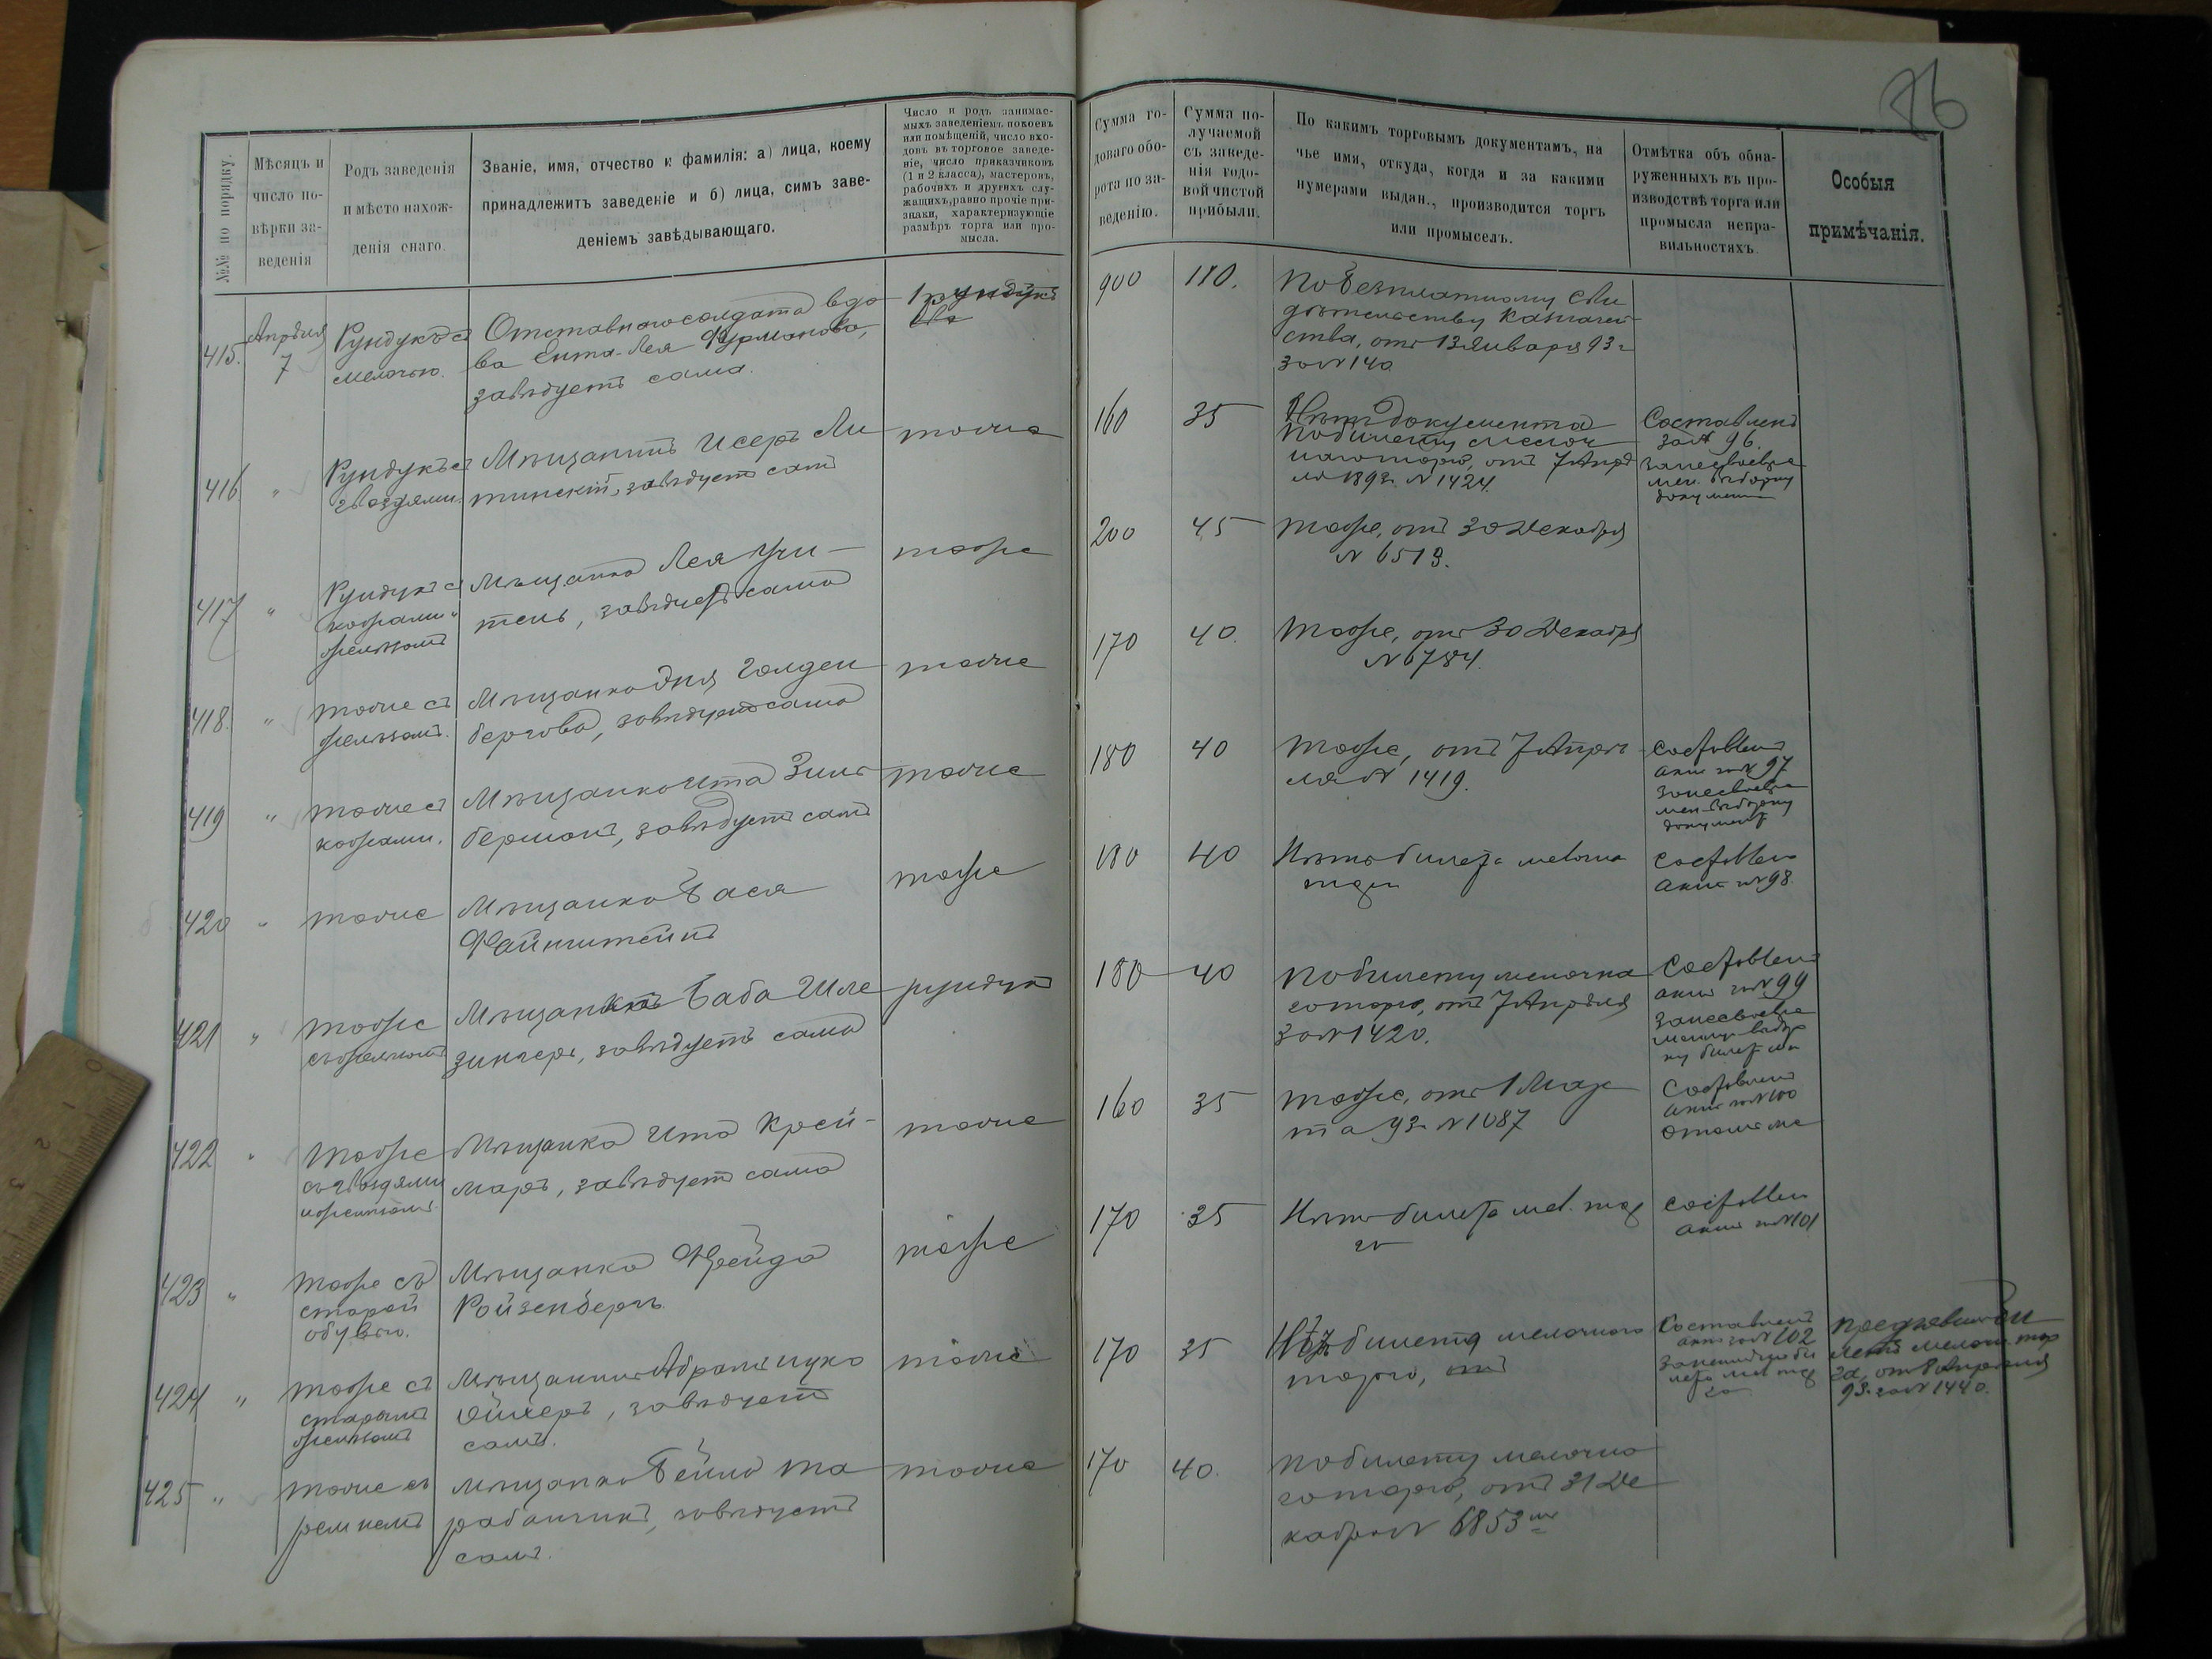 86
№№ по порядку.
Мѣсяцъ и
число по-
вѣрки за-
веденія
Родъ заведенія
и мѣсто нахож-
денія онаго.
Званіе, имя, отчество и фамилія: а) лица, коему
принадлежитъ заведеніе и б) лица, симъ заве-
деніемъ завѣдывающаго.
Число и родъ занимае-
мыхъ заведеніемъ покоевъ
или помѣщеній, число вхо-
довъ въ торговое заведе-
ніе, число приказчиковъ
(1 и 2 класса), мастеровъ,
рабочихъ и другихъ слу-
жащихъ, равно прочіе при-
знаки, характеризующіе
размѣръ торга или про-
мысла.
Сумма го-
доваго обо-
рота по за-
веденію.
Сумма по-
лучаемой
съ заведе-
нія годо-
вой чистой
прибыли.
По какимъ торговымъ документамъ, на
чье имя, откуда, когда и за какими
нумерами выдан., производится торгъ
или промыселъ.
Отмѣтка объ обна-
руженныхъ въ про-
изводствѣ торга или
промысла непра-
вильностяхъ.
Особыя
примѣчанія.
415.
Апрѣля
7
Рундукъ съ
мелочью.
Отставнаго солдата вдо
ва Ента-Лея Фурманова,
завѣдуетъ сама.
1 рундукъ
900
180.
По безплатному сви
дѣтельству казначей
ства, отъ 13 Января 93 г
за № 140
416
"
Рундукъ съ
гвоздями.
Мѣщанинъ Исеръ Ли
тинскій, завѣдуетъ самъ
тоже
160
35
Нѣтъ документа
По билету мелоч
наго торга, отъ 7 Апрѣ
ля 1893 г. № 1424.
Составленъ
за № 96.
417
"
Рундукъ съ
кожами и
желѣзомъ
Мѣщанка Лея Учи-
тель, завѣдуетъ сама
тоже
200
45
Тоже, отъ 30 Декабря
№ 6513.
418.
"
тоже съ
желѣзомъ.
Мѣщанка Эня Голден
бергова, завѣдуетъ сама
тоже
170
40.
Тоже, отъ 30 Декабря
№ 6784.
419
"
тоже съ
кожами.
Мѣщанка Ита Зиль
берманъ, завѣдуетъ самъ
тоже
180
40
Тоже, отъ 7 Апрѣ
ля № 1419.
Составленъ
актъ за № 97
420
"
тоже
Мѣщанка Бася
Файнштейнъ
тоже
180
40
Нѣтъ билета мелочна
торга
Составленъ
актъ за № 98.
421
"
тоже
съ желѣзомъ
Мѣщанка Баба Шле
зингеръ, завѣдуетъ сама
рундукъ
180
40
По билету мелочна
го торга, отъ 7 Апрѣля
за № 1420.
Составленъ
актъ за № 99
422
"
тоже
съ гвоздями
и желѣзомъ.
Мѣщанка Ита Крей-
маръ, завѣдуетъ сама
тоже
160
35
Тоже, отъ 1 Мар
та 93 г. № 1087
Составленъ
актъ за № 100
423
"
тоже съ
старой
обувью.
Мѣщанка Фрейда
Ройзенбергъ.
тоже
170
35
Нѣтъ билета мел. тор
го
Составлен
актъ за № 101
424
"
тоже съ
старымъ
желѣзомъ
Мѣщанинъ Абрамъ Ицко
Ойхеръ, завѣдуетъ
самъ.
тоже
170
35
Нѣтъ билета мелочного
торга,
Составленъ
актъ за № 102
Предъявилъ би
летъ мелочн. тор
га, отъ 8 Апрѣля
93 г. за № 1440.
425
"
тоже съ
ремнемъ
Мѣщанка Бейла Та
рабанчикъ, завѣдуетъ
самъ.
тоже
170
40.
По билету мелочна
го торга, отъ 31 Де
кабря № 6853